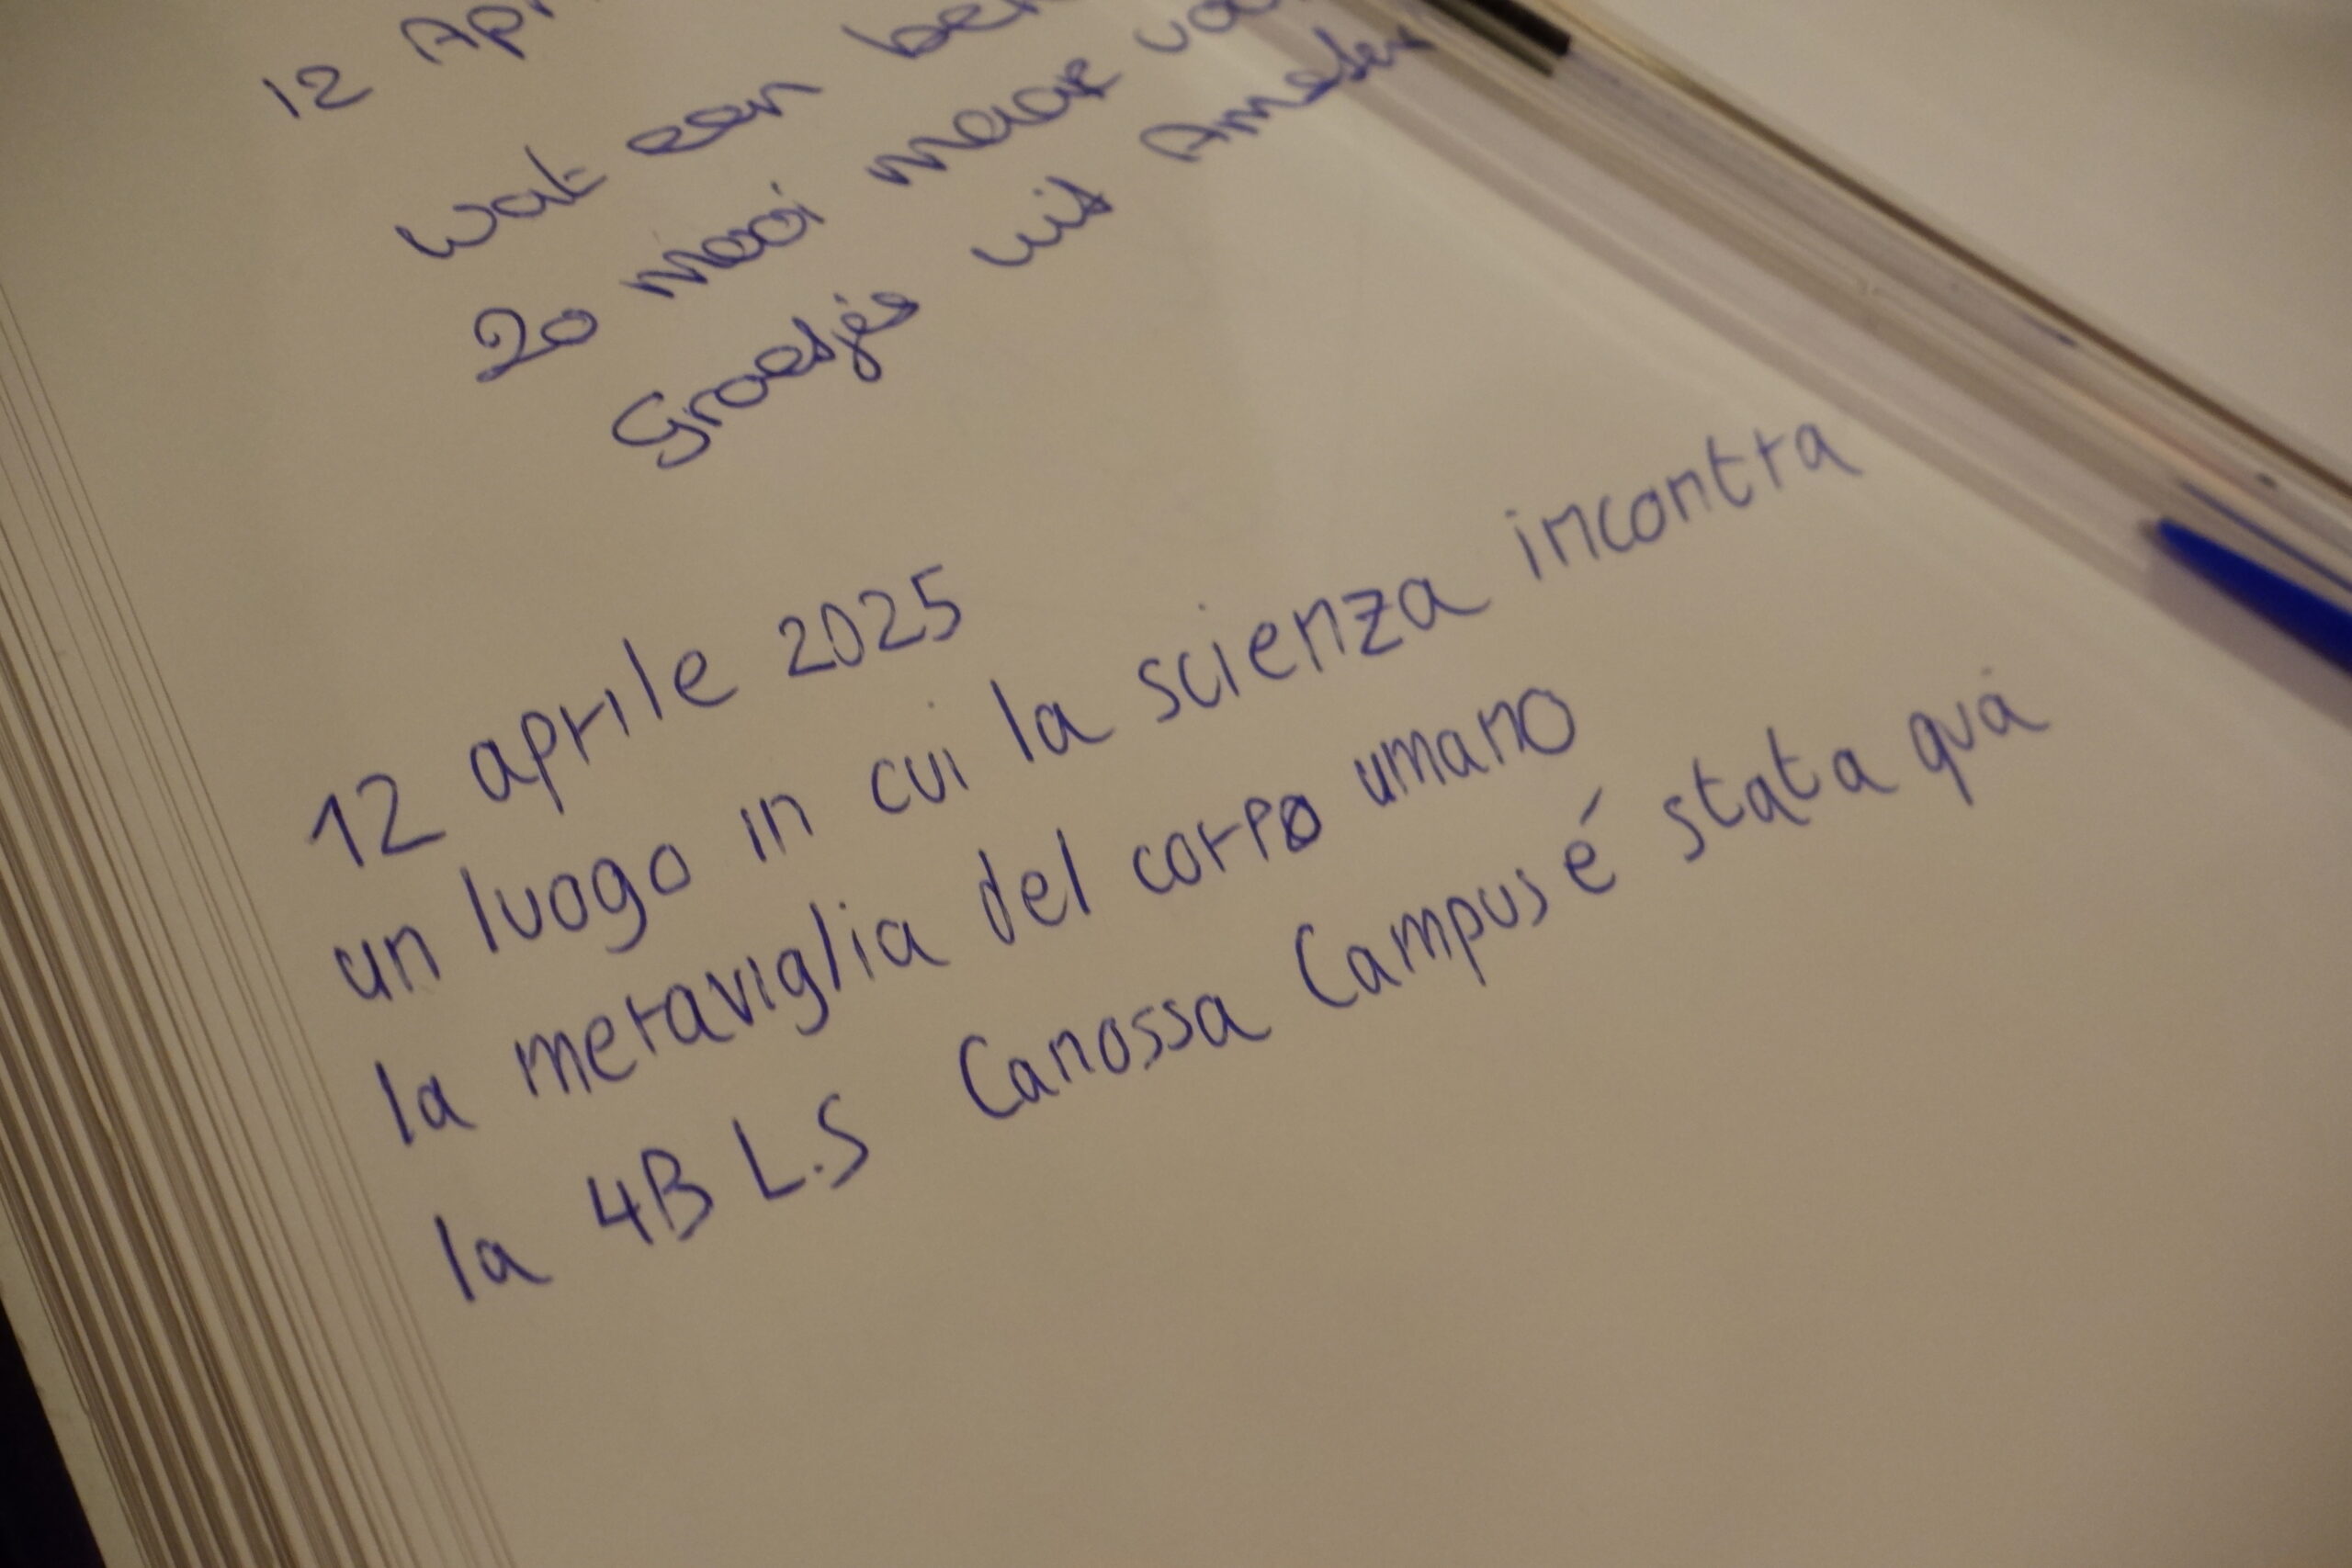 12 Apr
wat een
20 mooi maar
Groetjes uit Amster
12 aprile 2025
un luogo in cui la scienza incontra
la meraviglia del corpo umano
la 4B L.S Canossa Campus é stata quà